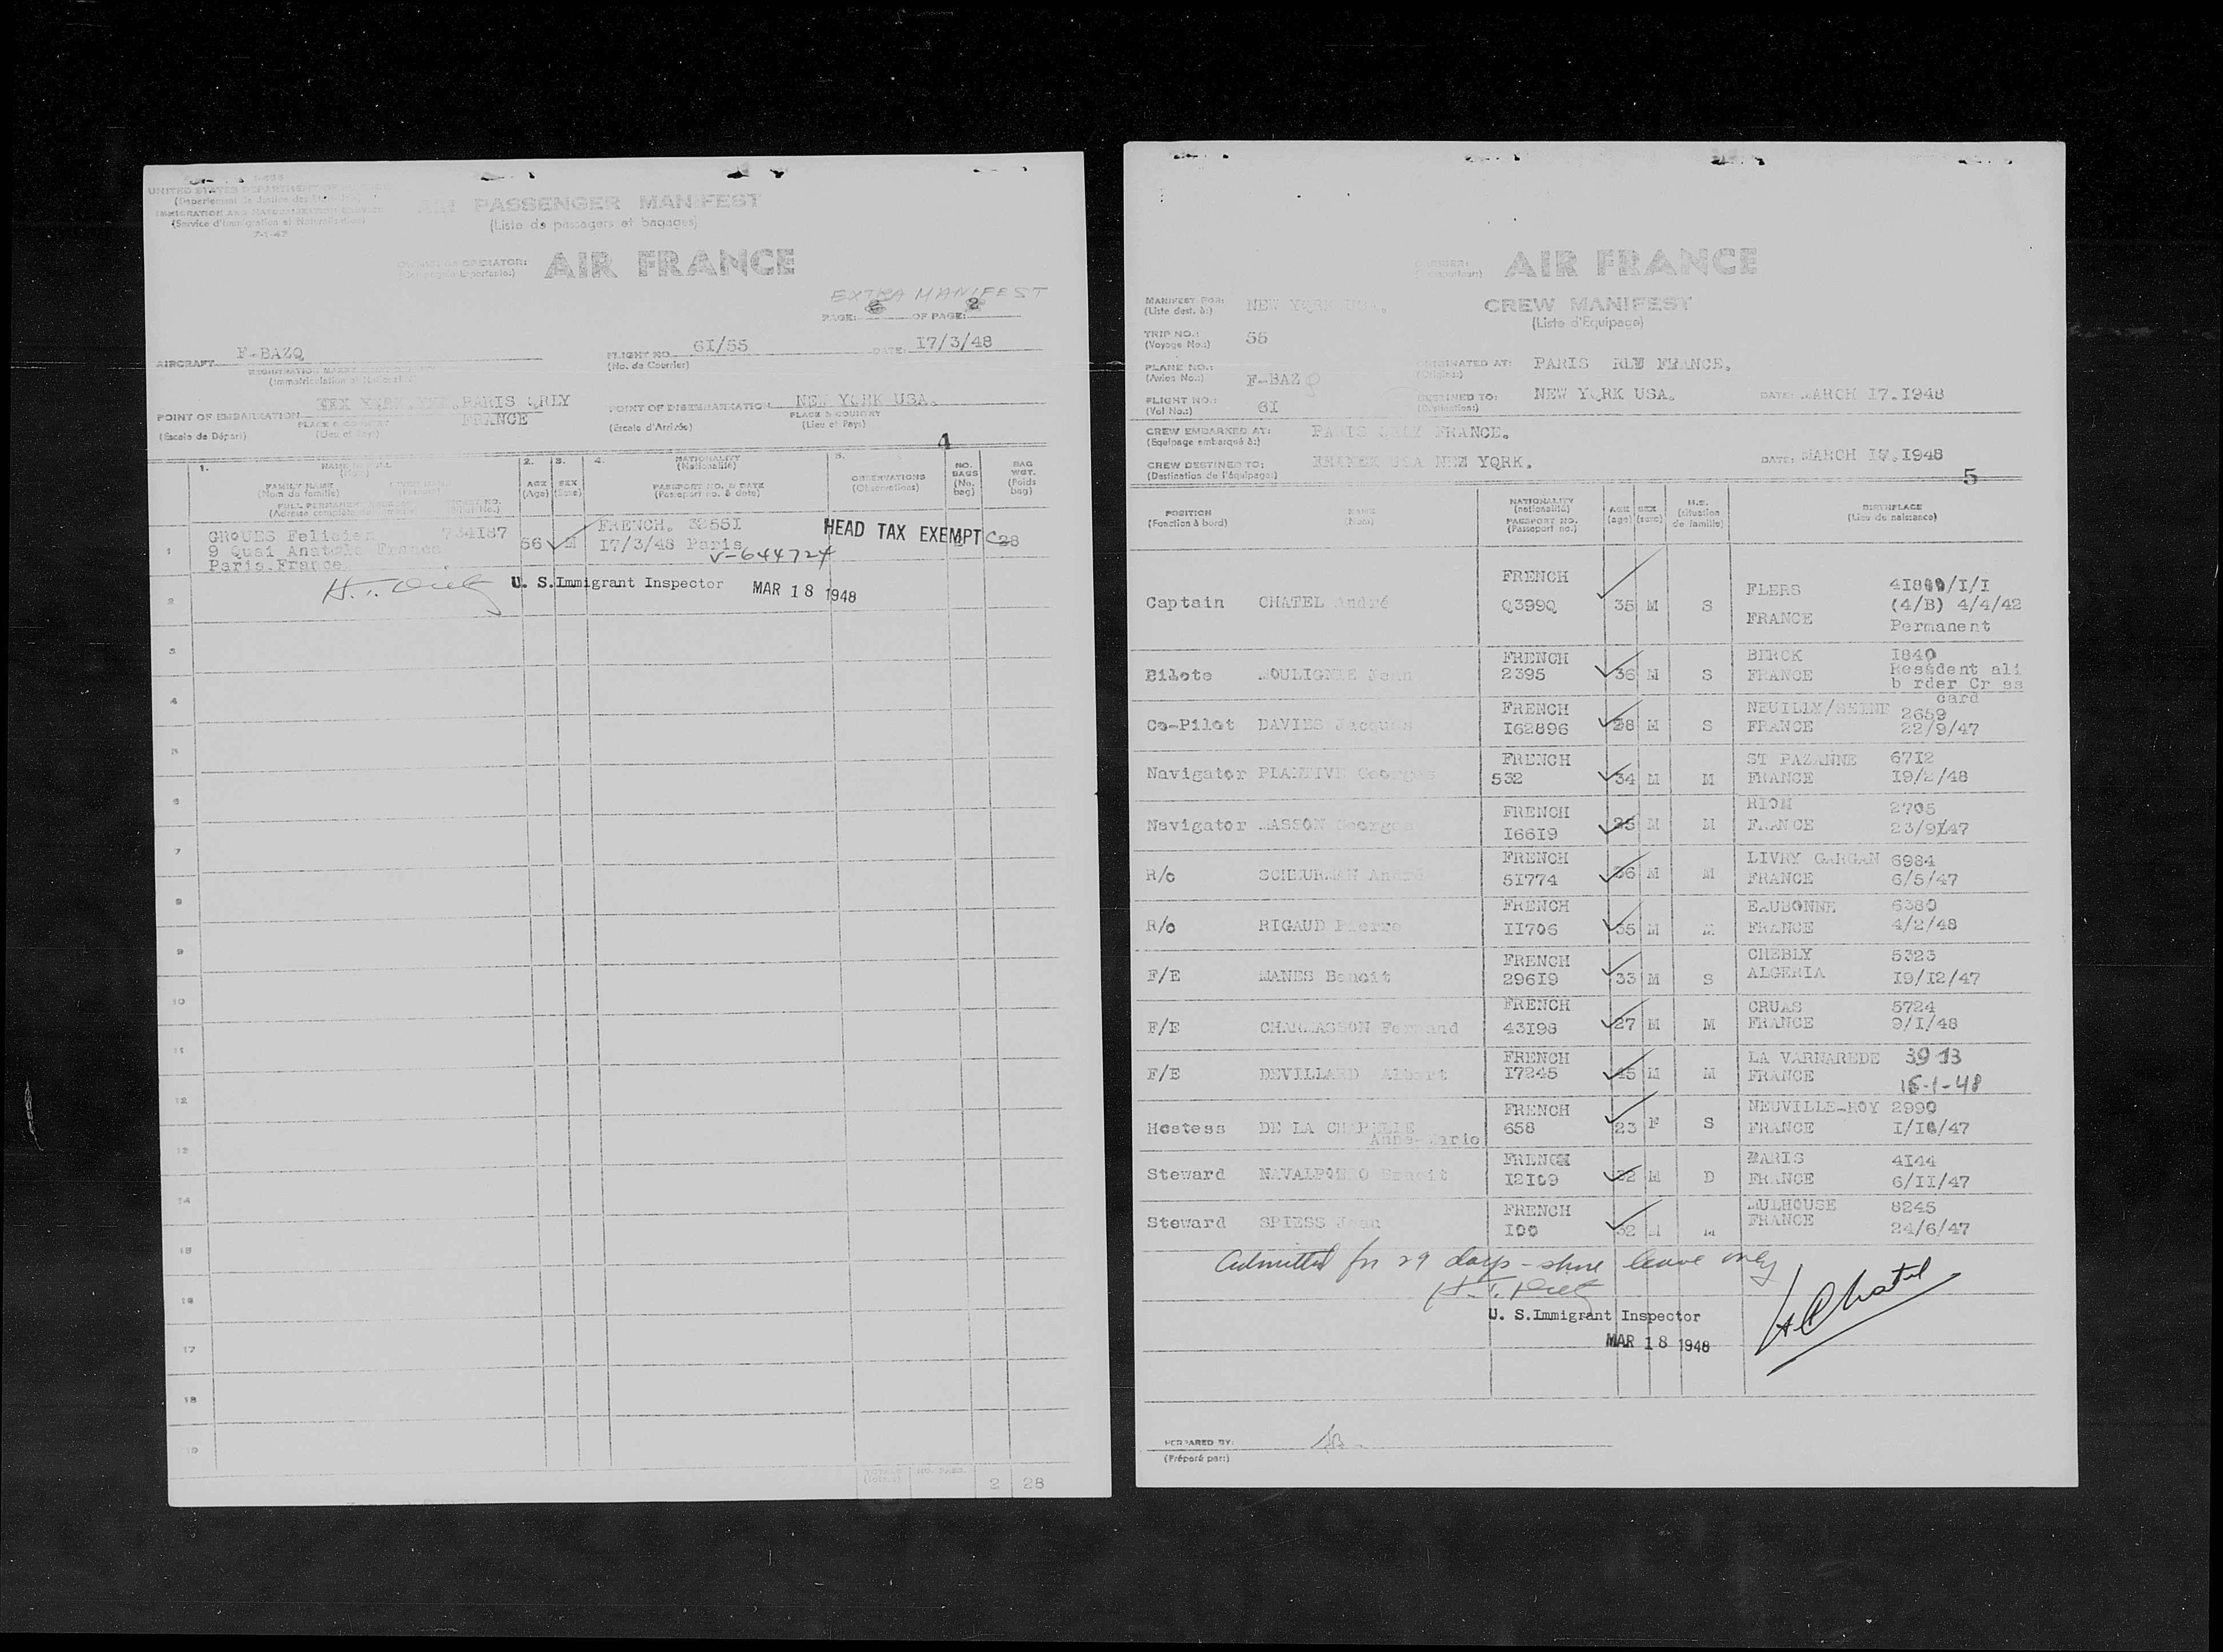 UNITED STATES DEPARTMENT OF JUSTICE
(Département de Justice des
IMMIGRATION AND NATURALIZATION SERVICE
(Service d'Immigration et Naturalisation)
7-1-47
AIR PASSENGER MANIFEST
(Liste de passagers et bagages)
OPERATOR:
AIR FRANCE
EXTRA MANIFEST
PAGE: OF PAGE: 2
AIRCRAFT F-BAZQ
FLIGHT NO. 6I/55
DATE: I7/3/48
(Immatriculation et Nationalité)
(No. de Courrier)
POINT OF EMBARKATION PARIS ORLY
FRANCE
PLACE & COUNTRY
(Escale de Départ) (Lieu et Pays)
POINT OF DISEMBARKATION NEW YORK USA.
PLACE & COUNTRY
(Escale d'Arrivée) (Lieu et Pays)
4
1. NAME IN FULL
FAMILY NAME
(Nom de famille)
FULL PERMANENT
2. AGE (Age)
3. SEX (Sexe)
4. NATIONALITY
(Nationalité)
PASSPORT NO. & DATE
(Passeport no. & date)
5. OBSERVATIONS
(Observations)
NO. BAGS (No. bag)
BAG WGT. (Poids bag)
1 GROUES Felicien 734I87 56 M FRENCH. 3255I HEAD TAX EXEMPT C28
9 Quai Anatole France I7/3/48 Paris
Paris.France V-644724
U. S.Immigrant Inspector MAR 18 1948
2
3
4
5
6
7
8
9
10
11
12
13
14
15
16
17
18
19
2 28
AIR FRANCE
CREW MANIFEST
(Liste d'Equipage)
MANIFEST FOR: NEW YORK USA.
(Liste dest. à:)
TRIP NO.: 55
(Voyage No.:)
PLANE NO.: F-BAZQ
(Avion No.:)
FLIGHT NO.: 6I
(Vol No.:)
ORIGINATED AT: PARIS FRANCE.
(Origine:)
DESTINED TO: NEW YORK USA. DATE: MARCH I7.I948
(Destination:)
CREW EMBARKED AT: PARIS ORLY FRANCE.
(Equipage embarqué à:)
CREW DESTINED TO: USA NEW YORK. DATE: MARCH I7.I948
(Destination de l'équipage:)
5
POSITION
(Fonction à bord)
NAME
(Nom)
NATIONALITY
(nationalité)
PASSPORT NO.
(Passeport no.)
AGE (age)
SEX (sexe)
M.S.
(situation de famille)
BIRTHPLACE
(Lieu de naissance)
Captain CHATEL André FRENCH Q399Q 35 M S FLERS FRANCE
(4/B) 4/4/42
Permanent
Pilote Jean FRENCH 2395 36 M S BERCK FRANCE I840
Resident ali
b rder Cr ss
card
Co-Pilot DAVIES Jacques FRENCH I62896 28 M S NEUILLY/SEINE FRANCE 2659 22/9/47
Navigator PLANTIVE Georges FRENCH 532 34 M M ST PAZANNE FRANCE 67I2 I9/2/48
Navigator MASSON Georges FRENCH I66I9 35 M M RIOM FRANCE 2705 23/9/47
R/o SCHEURMAN André FRENCH 5I774 36 M M LIVRY GARGAN FRANCE 6984 6/5/47
R/o RIGAUD Pierre FRENCH II706 35 M M EAUBONNE FRANCE 6380 4/2/48
F/E MANES Benoit FRENCH 296I9 33 M S CHEBLY ALGERIA 5323 I9/I2/47
F/E CHARMASSON Fernand FRENCH 43I98 27 M M CRUAS FRANCE 5724 9/I/48
F/E DEVILLARD Albert FRENCH I7245 45 M M LA VARNAREDE FRANCE 3913 15-1-48
Hostess DE LA CHAPELLE Anne-Marie FRENCH 658 23 F S NEUVILLE-ROY FRANCE 2990
Steward Benoit FRENCH I2I09 32 M D PARIS FRANCE 4I44 6/II/47
Steward SPIESS Jean FRENCH I00 32 M M MULHOUSE FRANCE 8245 24/6/47
Admitted for 29 days - shore leave only
U. S.Immigrant Inspector
MAR 18 1948
AChatel
PREPARED BY:
(Préparé par:)